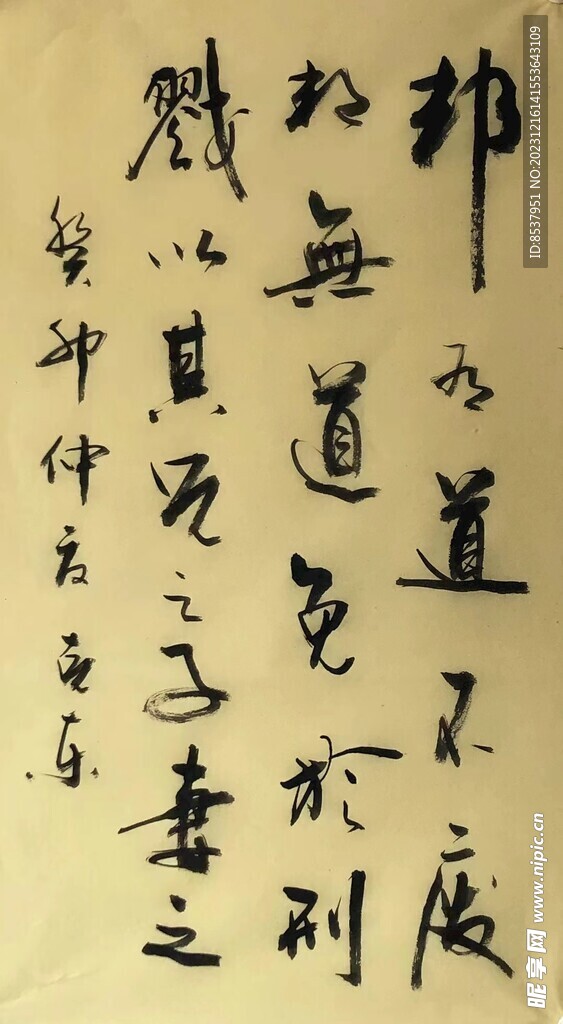 邦有道不廢
邦無道免於刑
戮以其兄之子妻之
癸卯仲夏克東
ID:8537951 NO:20231216141553643109
昵享网 www.nipic.cn